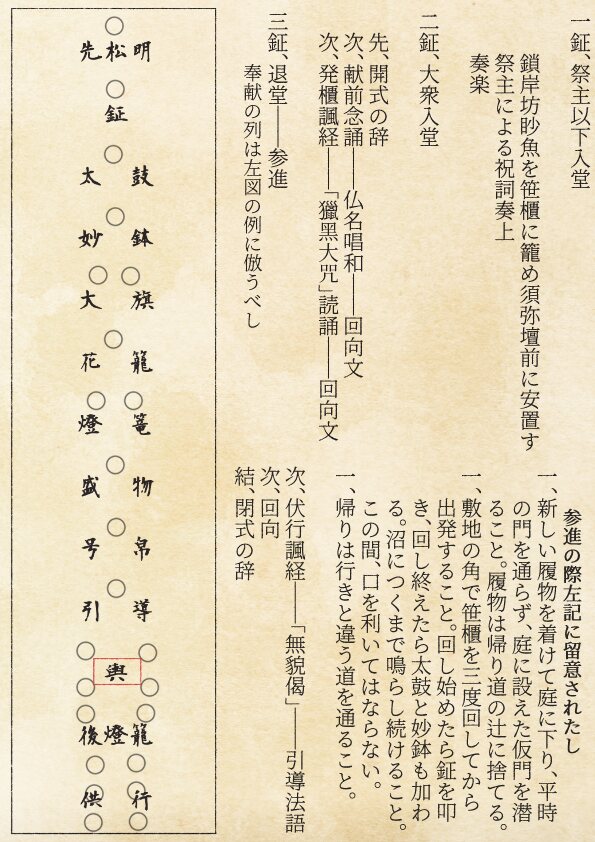 一鉦、祭主以下入堂
鎖岸坊眇魚を笹櫃に籠め須弥壇前に安置す
祭主による祝詞奏上
奏楽
二鉦、大衆入堂
先、開式の辞
次、献前念誦――仏名唱和――回向文
次、発櫃諷経――「獵黑大咒」読誦――回向文
三鉦、退堂――参進
奉献の列は左図の例に倣うべし
参進の際左記に留意されたし
一、新しい履物を着けて庭に下り、平時
の門を通らず、庭に設えた仮門を潜
ること。履物は帰り道の辻に捨てる。
一、敷地の角で笹櫃を三度回してから
出発すること。回し始めたら鉦を叩
き、回し終えたら太鼓と妙鉢も加わ
る。沼につくまで鳴らし続けること。
この間、口を利いてはならない。
一、帰りは行きと違う道を通ること。
次、伏行諷経――「無貌偈」――引導法語
次、回向
結、閉式の辞
先松明
鉦
太鼓
妙鉢
大旗
花籠
燈篭
盛物
号帛
引導
輿
後燈籠
供行